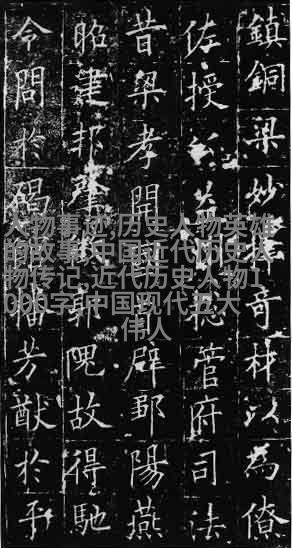 鎮銅梁妙擇奇材以為僚
佐授公益州總管府司法
昔梁孝開國首辟鄒陽燕
昭建邦肇徵郭隗故得馳
令問於碣館播芳猷於平
人物事迹,历史人物英雄
的故事,中国近代历史人
物传记,近代历史人物1
000字,中国现代五大
伟人